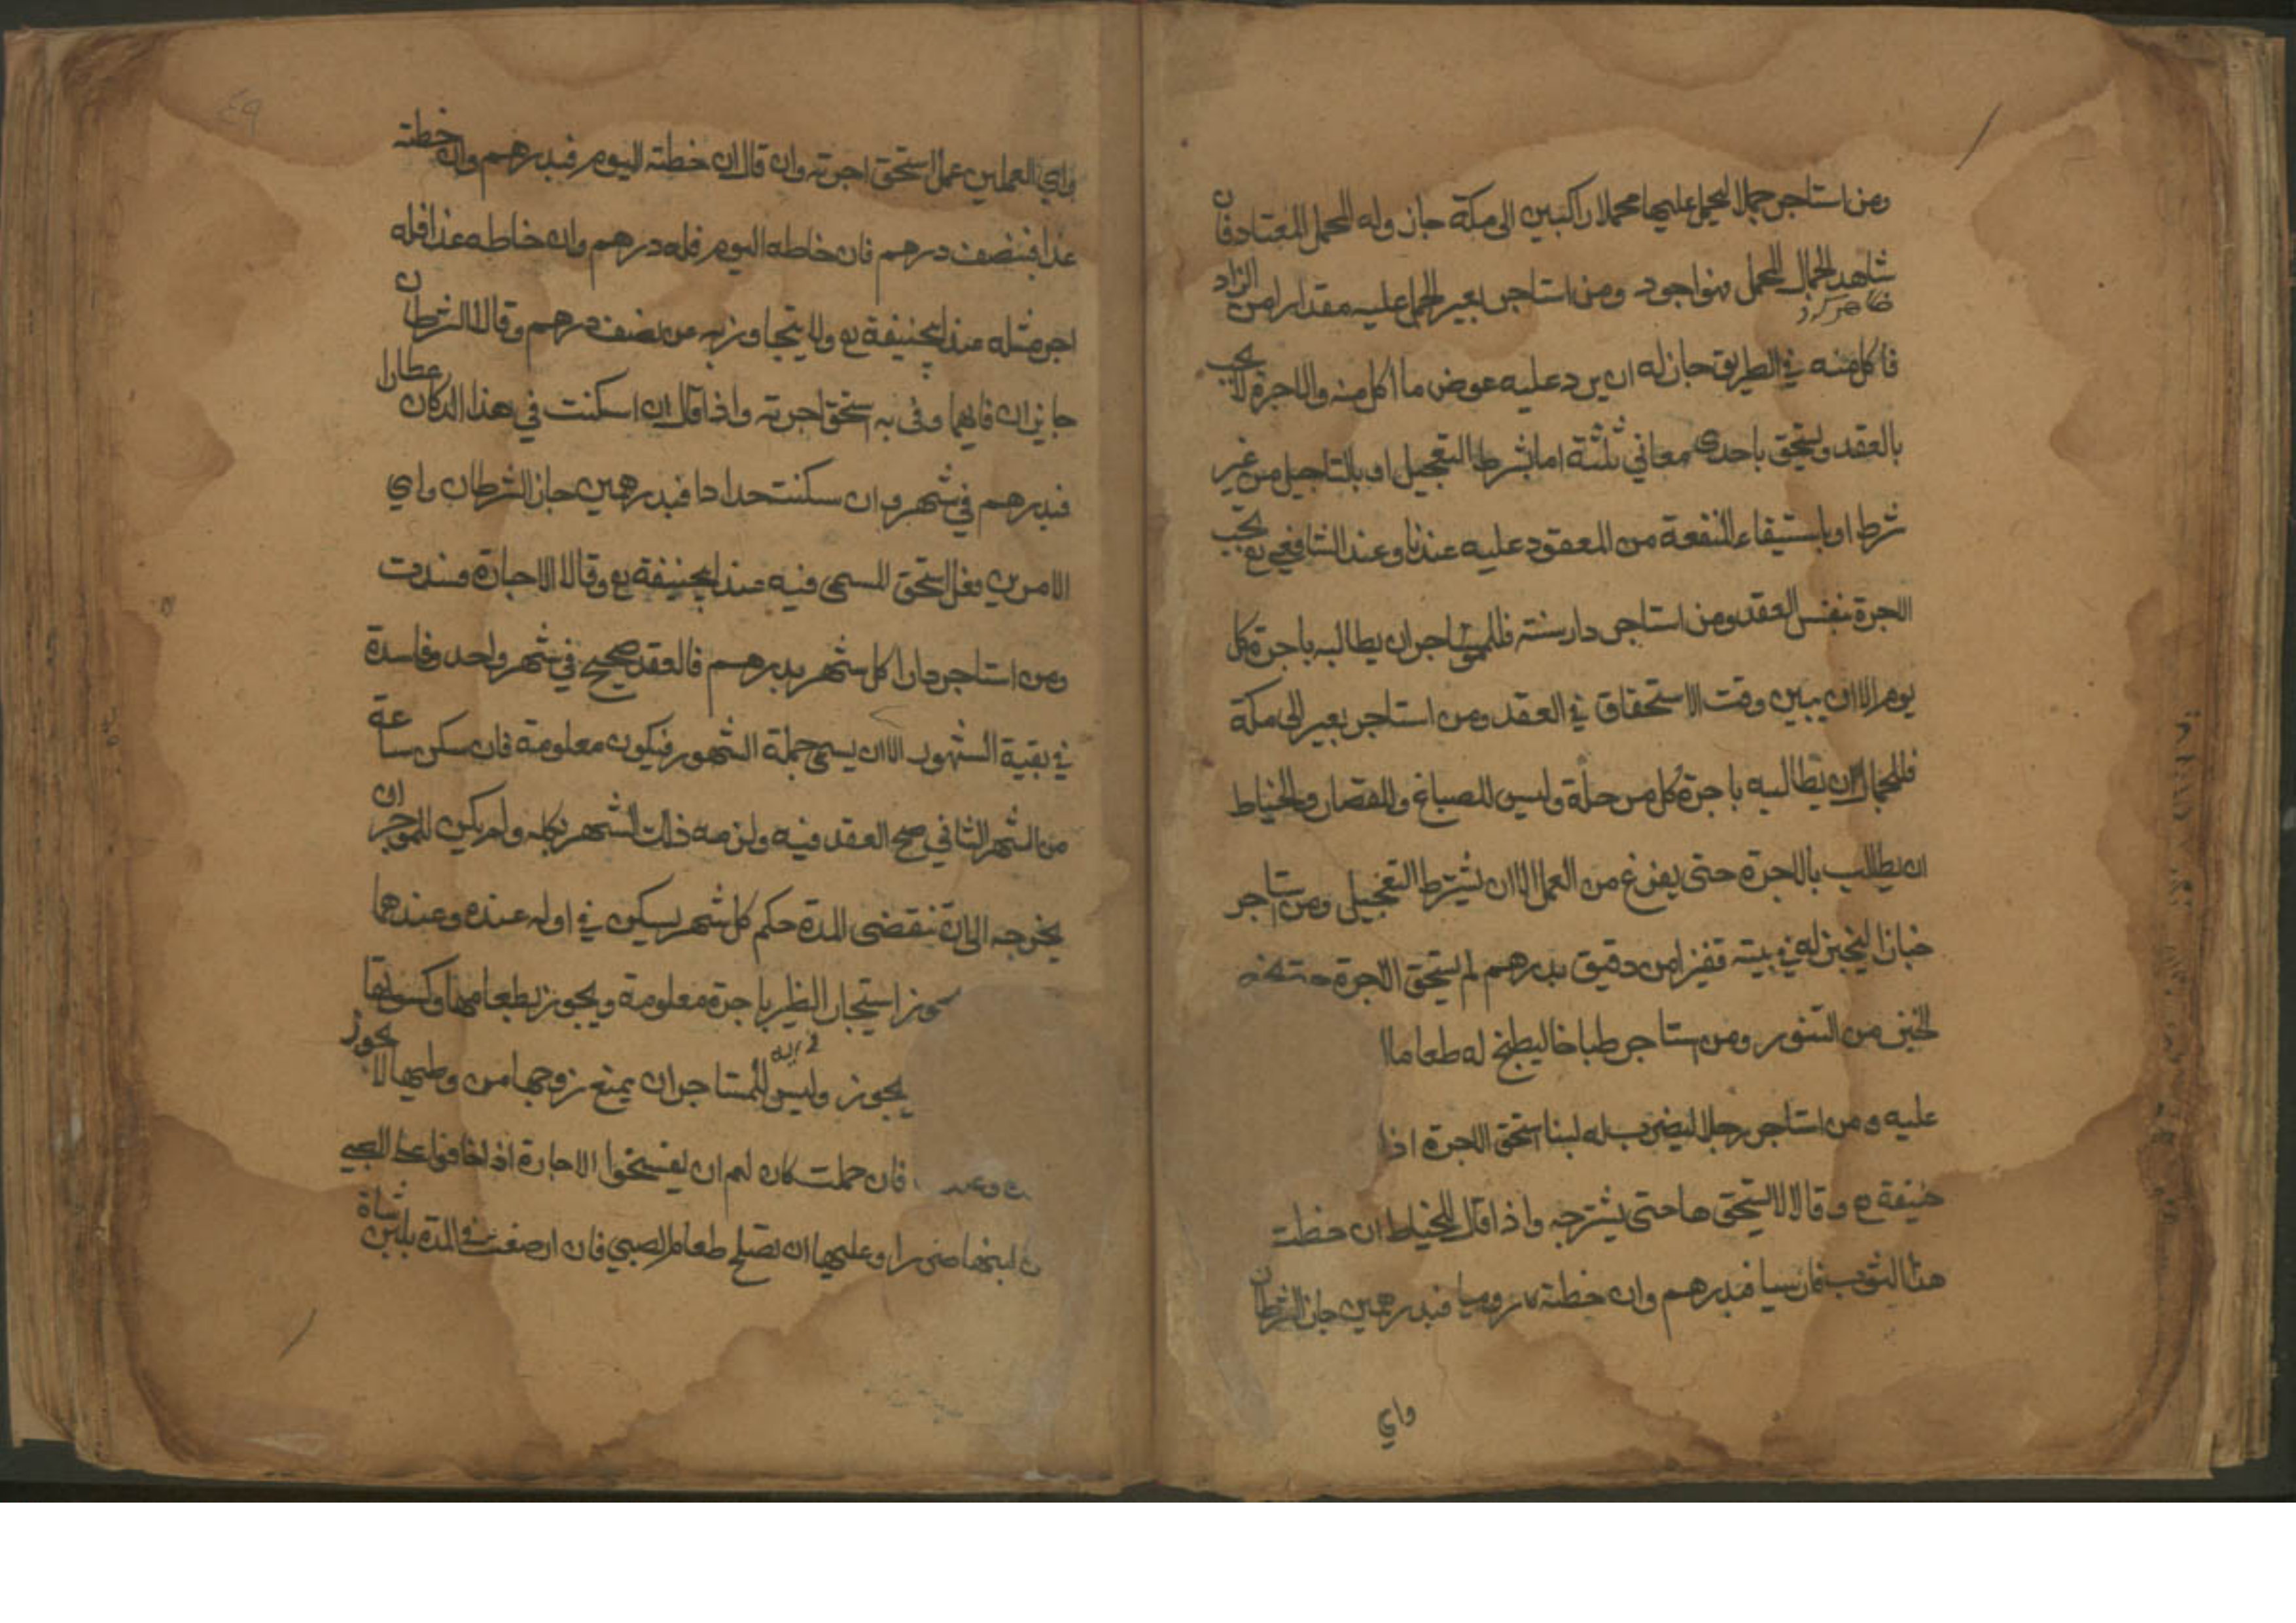 ومن استاجر جملا ليحمل عليها محملا راكبين الى مكة جاز وله المحمل المعتاد فان
شاهد الجمال المحمل فهو اجود ومن استاجر بعير ليحمل عليه مقدارا من الزاد
فاكل منه في الطريق جاز له ان يرد عليه عوض ما اكل منه والاجرة لا يجب
بالعقد ويستحق باحدى معاني ثلثة اما بشرط التعجيل او بالتاجيل من غير
شرط او باستيفاء المنفعة من المعقود عليه عندنا وعند الشافعي رح يجب
الاجرة بنفس العقد ومن استاجر دار سنة فللمواجر ان يطالبه باجرة كل
يوم الا ان يبين وقت الاستحقاق في العقد ومن استاجر بعير الى مكة
فللجمال ان يطالبه باجرة كل مرحلة وليس للصباغ والقصار والخياط
ان يطالب بالاجرة حتى يفرغ من العمل الا ان يشترط التعجيل ومن استاجر
خبازا ليخبز له في بيته قفيز من دقيق بدرهم لم يستحق الاجرة حتى يخرج
الخبز من التنور ومن استاجر طباخا ليطبخ له طعاما
عليه ومن استاجر رجلا ليضرب له لبنا استحق الاجرة اذا
حنيفة رح وقالا لا يستحق ها حتى يشرجه واذا قال للخياط ان خطت
هذا الثوب فارسيا فبدرهم وان خطته روميا فبدرهمين جاز الشرطان
واي
٤٩
واي العملين عمل استحق اجرته وان قال ان خطته اليوم فبدرهم وان خطته
غدا فبنصف درهم فان خاطه اليوم فله درهم وان خاطه غدا فله
اجر مثله عند ابيحنيفة رح ولا يتجاوز به عن نصف درهم وقالا الشرطان
جايزان فايهما وفى به استحق اجرته واذا قال ان اسكنت في هذا الدكان عطارا
فبدرهم في شهر وان سكنت حدادا فبدرهمين جاز الشرطان واي
الامرين فعل استحق المسمى فيه عند ابيحنيفة رح وقالا الاجارة فسدت
ومن استاجر دارا كل شهر بدرهم فالعقد صحيح في شهر واحد وفاسدة
في بقية الشهور الا ان يسمى جملة الشهور فيكون معلومة فان سكن ساعة
من الشهر الثاني صح العقد فيه ولزمه ذلك الشهر بكله ولم يكن للمواجر ان
يخرجه الى ان تنقضى المدة حكم كل شهر يسكن في اوله عنده وعندهما
يجوز استيجار الظير باجرة معلومة ويجوز بطعامها وكسوتها
يجوز وليس للمستاجر ان يمنع زوجها من وطيها لا يجوز
فان حملت كان لهم ان يفسخوا الاجارة اذا خافوا على الصبي
لبنها ضررا وعليها ان تصلح طعام الصبي فان ارضعت في المدة بلبن شاة